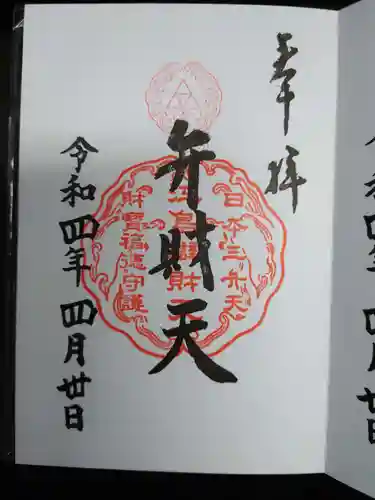 奉拝
日本三弁天
江島辯財天
財寶福徳守護
弁財天
令和四年 四月廿日